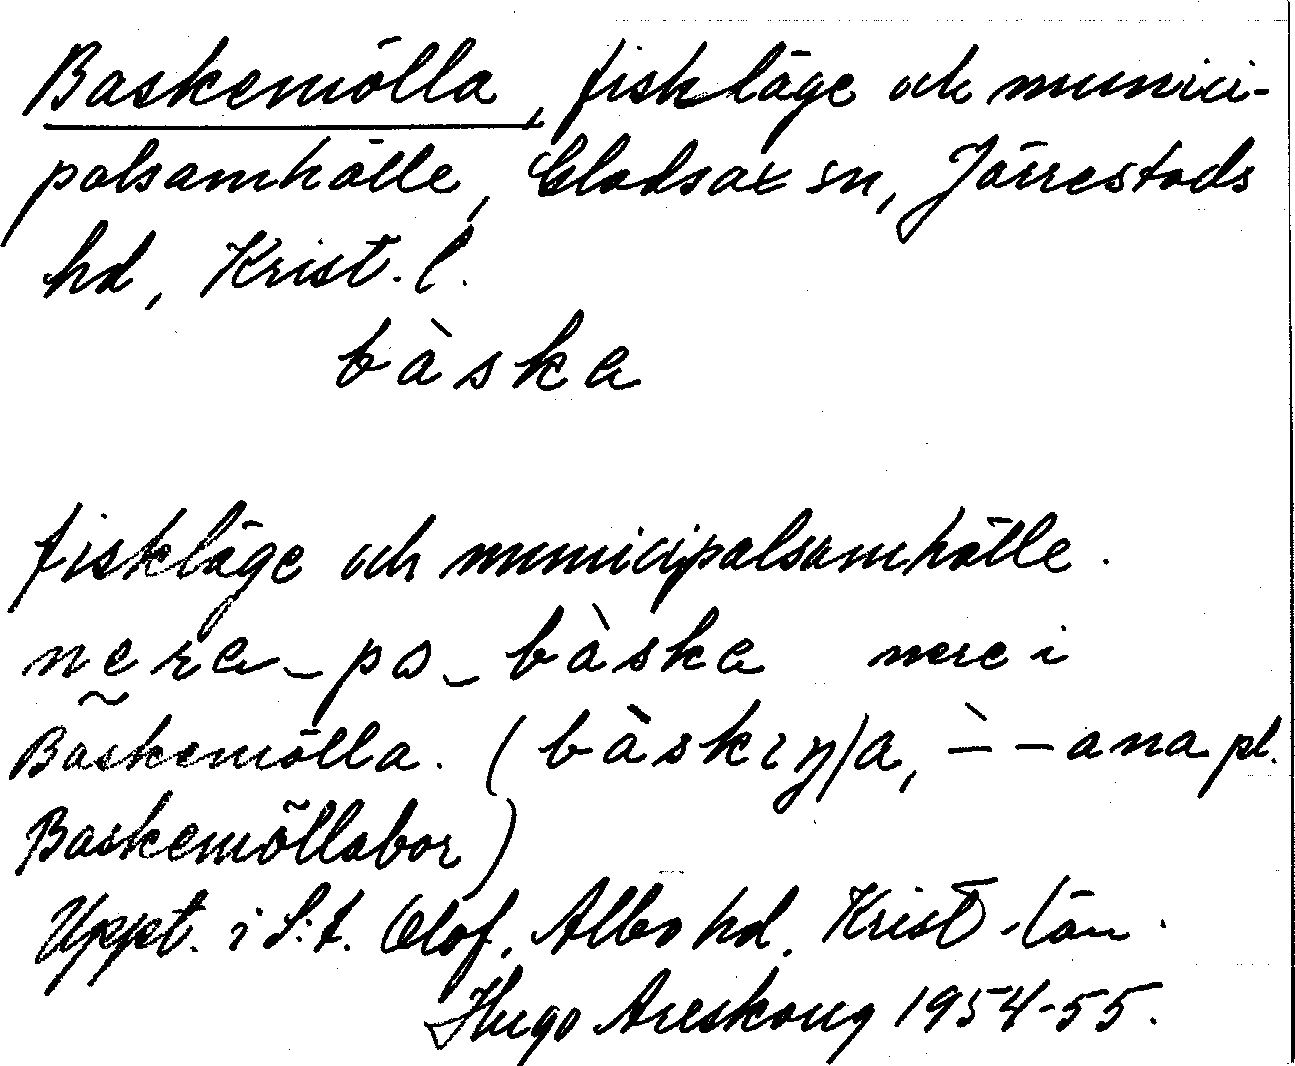 Baskemölla, fiskläge och munici-
palsamhälle, Gladsax sn, Järrestads
hd, Krist. l.
bàska
fiskläge och municipalsamhälle.
nera - pa - bàska nere i
Baskemölla. (bàskıŋ/a, -̀ - -ana pl.
Baskemöllabor)
Uppt. i S:t. Olof, Albo hd. Krist. län.
Hugo Areskoug 1954-55.